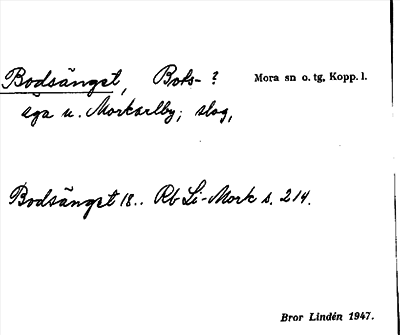 Bodsänget, Bots- ? Mora sn o. tg, Kopp. l.
äga u. Morkarlby; slog,
Bodsänget 18.. Rb Li-Mork s. 214.
Bror Lindén 1947.